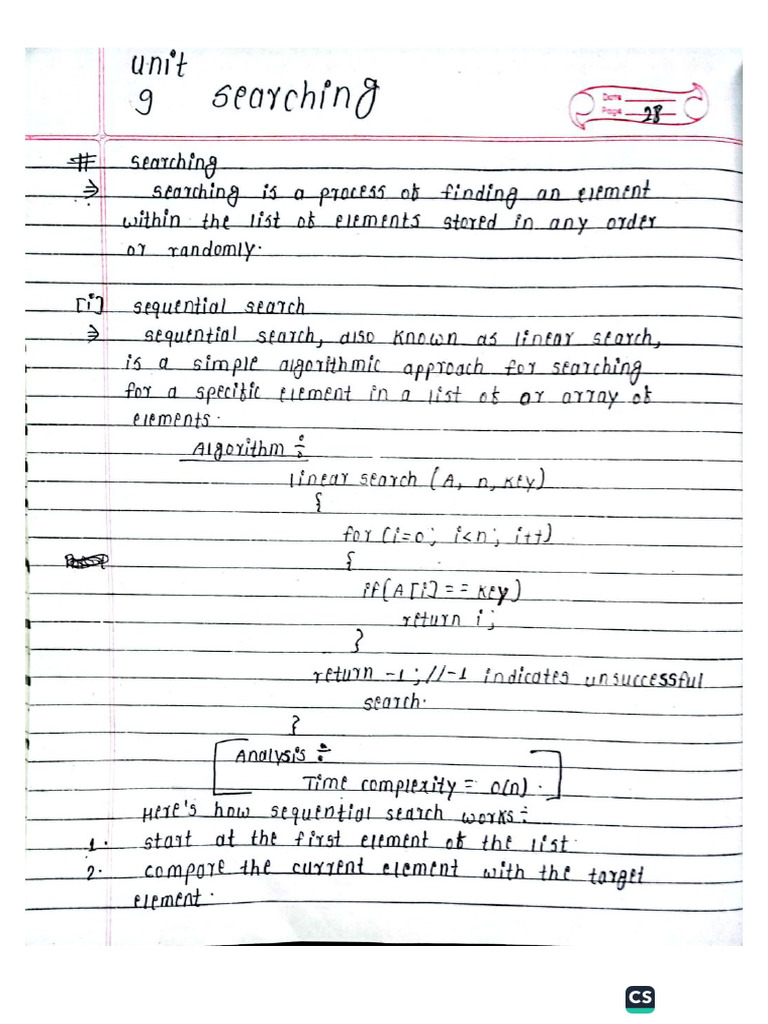 unit
9 searching
Date
Page 28
# searching
⇒ searching is a process of finding an element
within the list of elements stored in any order
or randomly.
[i] sequential search
⇒ sequential search, also known as linear search,
is a simple algorithmic approach for searching
for a specific element in a list of or array of
elements.
Algorithm :
linear search (A, n, key)
{
for (i=0; i<n; i++)
{
if(A[i] == key)
return i;
}
return -1; //-1 indicates unsuccessful
search.
}
Analysis :
Time complexity = O(n).
Here's how sequential search works:
1. start at the first element of the list.
2. compare the current element with the target
element.
CS